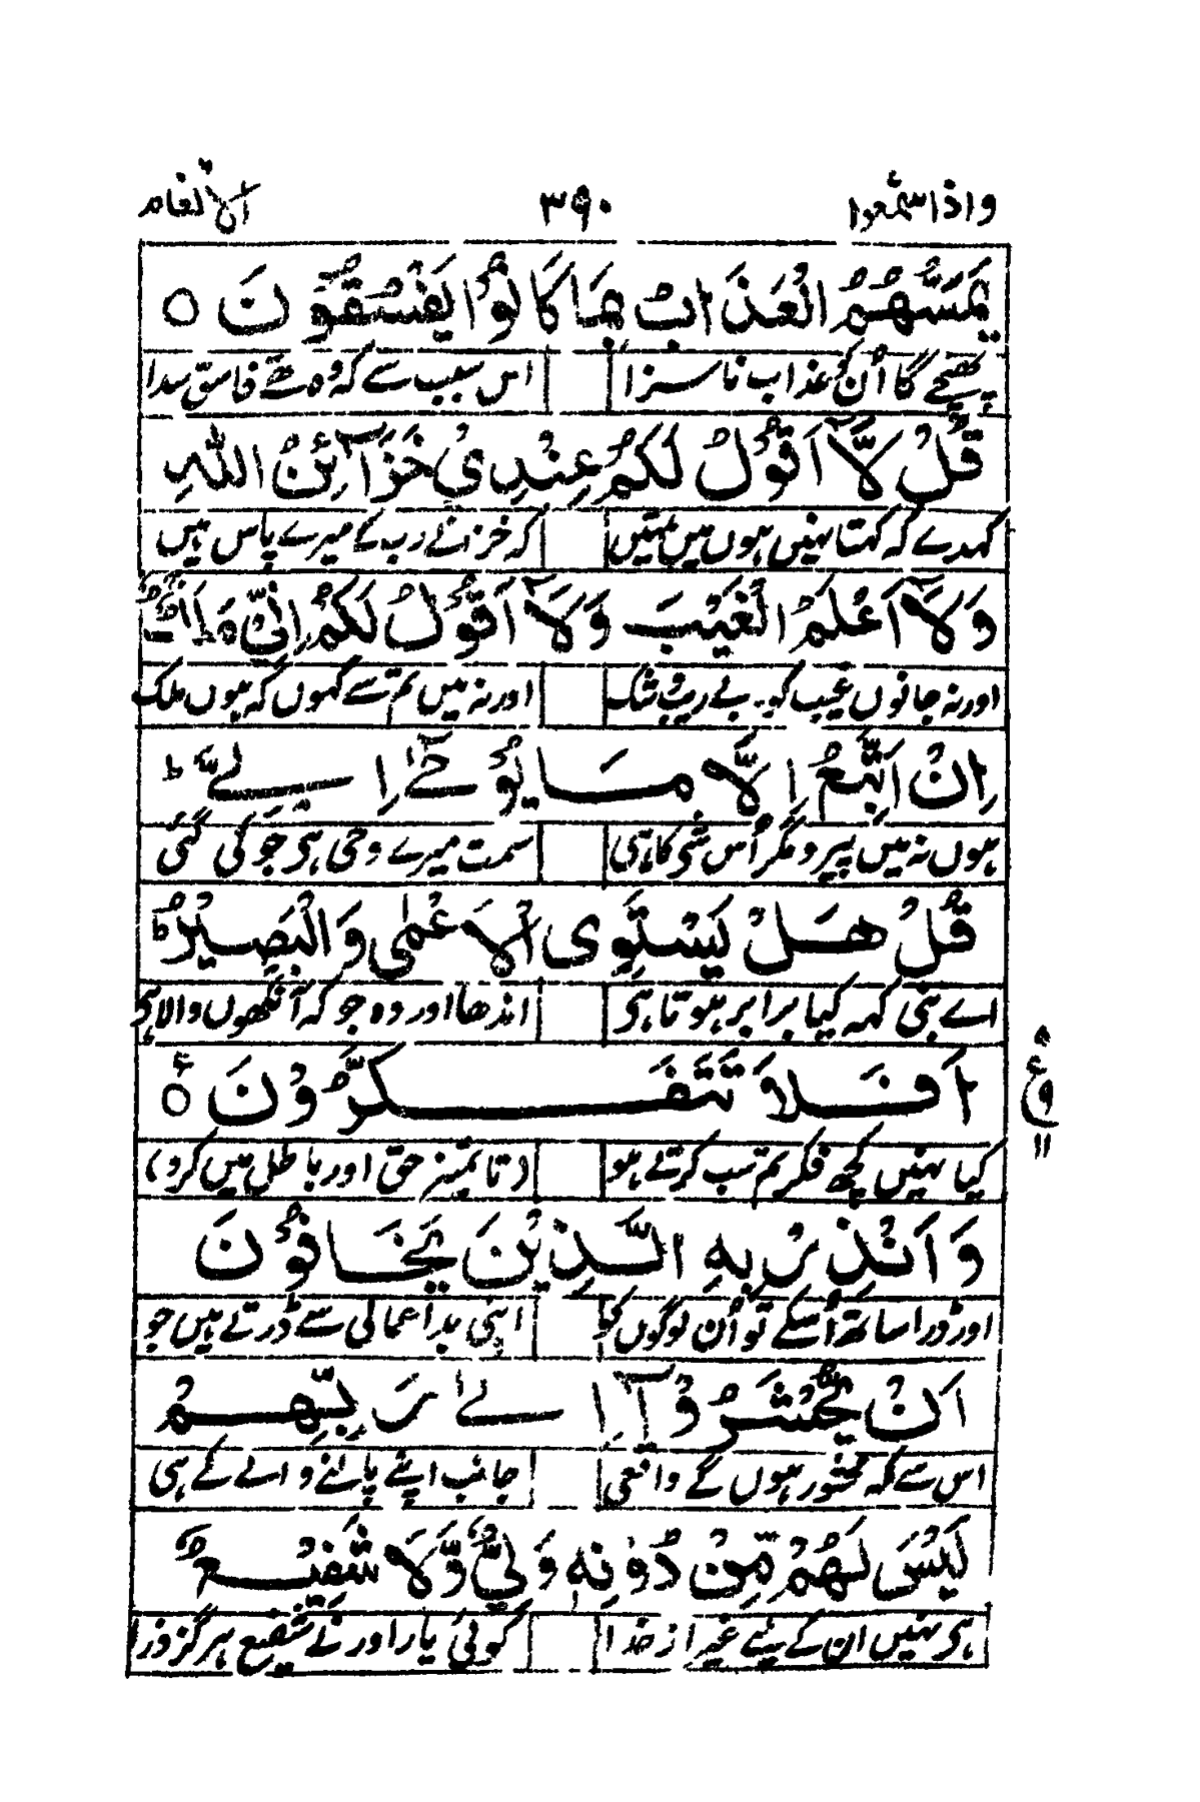 واذاسمعوا ۳۹۰ الانعام
يَمَسُّهُمُ الْعَذَابُ بِمَا كَانُوْا يَفْسُقُوْنَ ○
پہنچے گا اُن کو عذاب نا سزا اس سبب سے کہ وہ تھے فاسق سدا
قُلْ لَّآ اَقُوْلُ لَكُمْ عِنْدِيْ خَزَآئِنُ اللّٰهِ
کہدے کہ کہتا نہیں ہوں میں تمہیں کہ خزانے رب کے میرے پاس ہیں
وَلَآ اَعْلَمُ الْغَيْبَ وَلَآ اَقُوْلُ لَكُمْ اِنِّيْ مَلَكٌ ۚ
اور نہ جانوں غیب کو بے ریب و شک اور نہ میں تم سے کہوں کہ ہوں ملک
اِنْ اَتَّبِعُ اِلَّا مَا يُوْحٰٓى اِلَيَّ ط
ہوں نہ میں پیرو مگر اُس شی کا ہی سمت میرے وحی ہی جو کی گئی
قُلْ هَلْ يَسْتَوِى الْاَعْمٰى وَالْبَصِيْرُ ط
اے نبی کہہ کیا برابر ہوتا ہی اندھا اور وہ جو کہ آنکھوں والا ہی
اَفَلَا تَتَفَكَّرُوْنَ ○ ع
۵ ع ۱۱
کیا نہیں کچھ فکر تم سب کرتے ہو (تا تمیز حق اور باطل میں کرو)
وَاَنْذِرْ بِهِ الَّذِيْنَ يَخَافُوْنَ
اور ڈرا ساتھ اُسکے تو اُن لوگوں کو اپنی بد اعمالی سے ڈرتے ہیں جو
اَنْ يُّحْشَرُوْٓا اِلٰى رَبِّهِمْ
اس سے کہ محشور ہوں گے واقعی جانب اپنے پالنے والے کے ہی
لَيْسَ لَهُمْ مِّنْ دُوْنِهٖ وَلِيٌّ وَّلَا شَفِيْعٌ
ہی نہیں ان کے لیئے غیر از خدا کوئی یار اور نے شفیع ہرگز وزرا